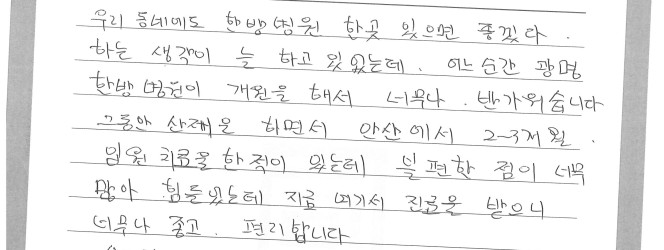 우리 동네에도 한방병원 한곳 있으면 좋겠다.
하는 생각이 늘 하고 있었는데. 어느순간 광명
한방병원이 개원을 해서 너무나. 반가워습니다
그동안 산재을 하면서 안산에서 2-3개월.
입원 치료을 한적이 있는데 불편한 점이 너무
많아 힘들었는데 지금 여기서 진료을 받으니
너무나 좋고. 편리합니다